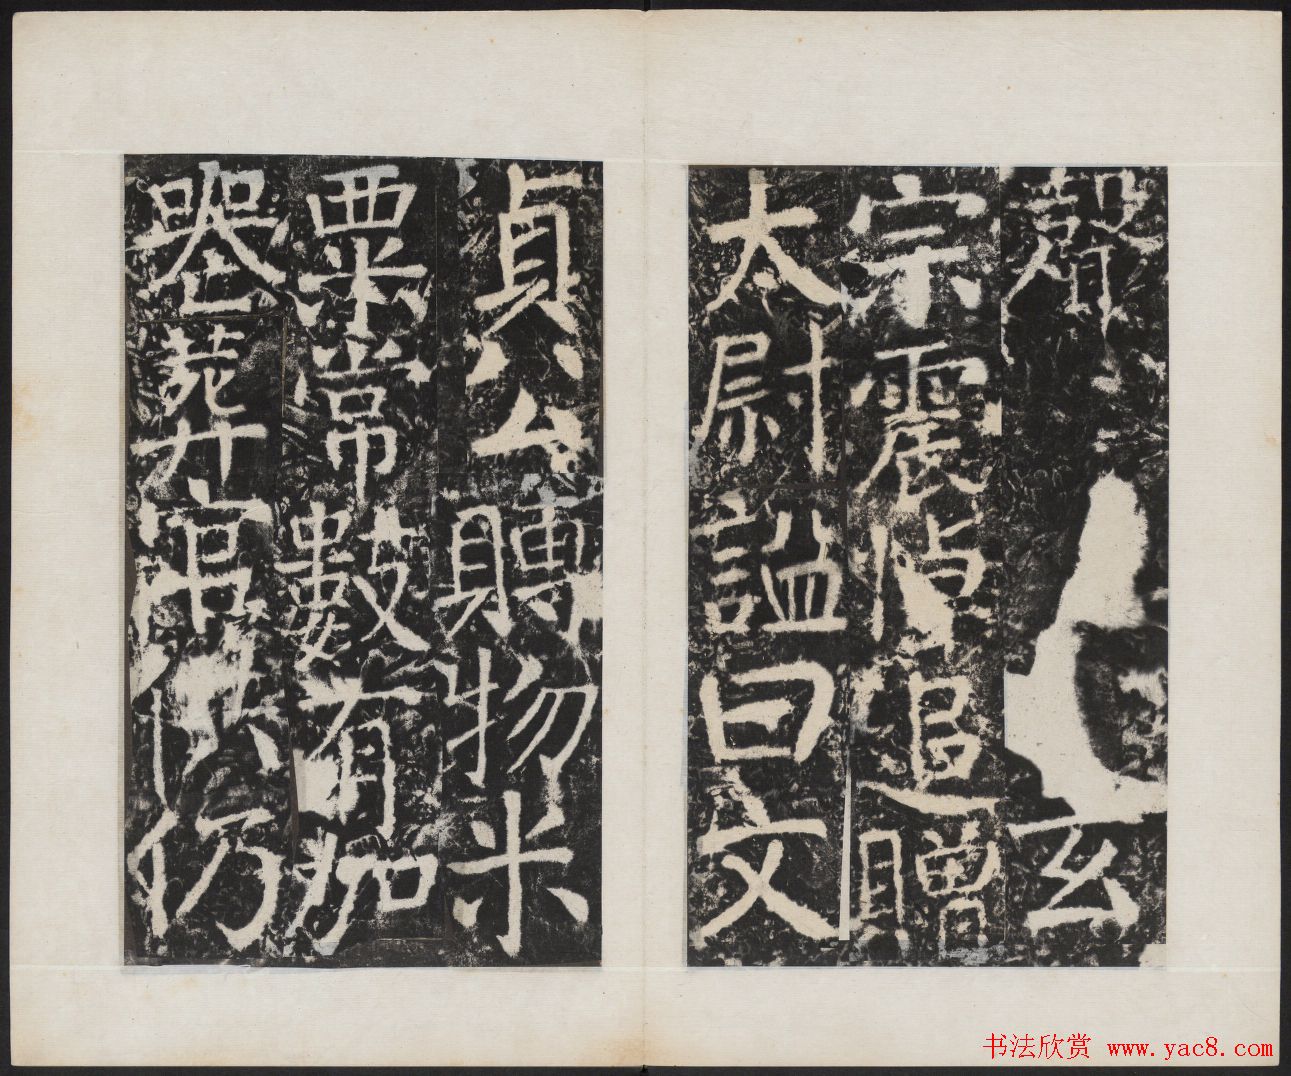 玄
宗震悼追贈
太尉謚曰文
貞公賻物米
粟常數有加
喪葬官供仍
书法欣赏 www.yac8.com